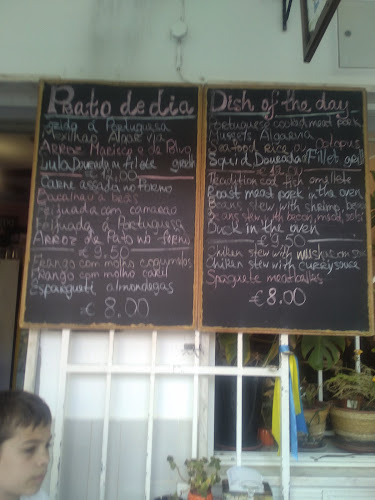 Prato de dia
á Portuguesa
Mexilhão Algarvia
Arroz Marisco e de Polvo
Lula Dourada filete grelh
€ 12,00
Carne assada no forno
Bacalhau á brás
Feijoada com camarao
Feijuada á Portuguesa
Arroz de Pato no forno
€ 9.50
Frango com molho cogumelos
Frango com molho caril
Esparguete almondegas
€ 8.00
Dish of the day
Portuguese cooked meat pork
Mussels Algarvia
Seafood Rice or octopus
Squid Dourada Fillet grill
Tradition cod fish omillete
Roast meat pork in the oven
Beans stew with shrimp
Beans stew with bacon,
Duck in the oven
€ 9.50
Chiken stew with
Chiken stew with curry sauce
Spaguete meatballs
€ 8.00